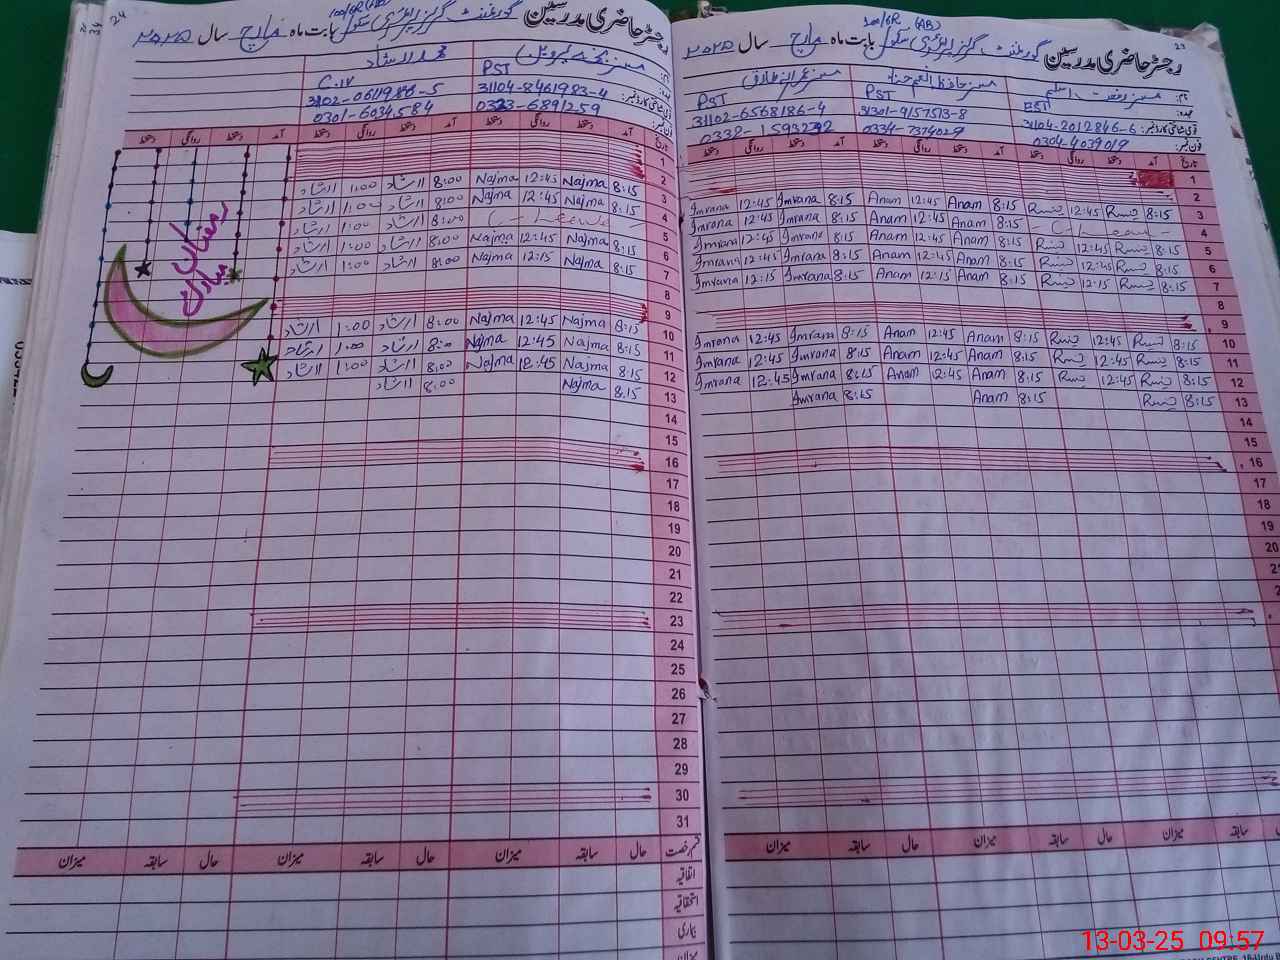 24
100/6R (AB)
رجسٹر حاضری مدرسین گورنمنٹ گرلز ایلیمنٹری سکول بابت ماہ مارچ سال ۲۰۲۵
محمد ارشاد
PST
C.IV
31104-8461983-4
0323-6891259
0301-6034584
تاریخ آمد دستخط روانگی دستخط آمد دستخط روانگی دستخط آمد دستخط روانگی دستخط
1
2 8:15 Najma 12:45 Najma 8:00 ارشاد 1:00 ارشاد
3 8:15 Najma 12:45 Najma 8:00 ارشاد 1:00 ارشاد
4 C-Leave 8:00 ارشاد 1:00 ارشاد
5 8:15 Najma 12:45 Najma 8:00 ارشاد 1:00 ارشاد
6 8:15 Najma 12:15 Najma 8:00 ارشاد 1:00 ارشاد
7
8
9
10 8:15 Najma 12:45 Najma 8:00 ارشاد 1:00 ارشاد
11 8:15 Najma 12:45 Najma 8:00 ارشاد 1:00 ارشاد
12 8:15 Najma 12:45 Najma 8:00 ارشاد 1:00 ارشاد
13 8:15 Najma 8:00 ارشاد
14
15
16
17
18
19
20
21
22
23
24
25
26
27
28
29
30
31
رمضان
مبارک
قسم رخصت حال سابقہ میزان حال سابقہ میزان حال سابقہ میزان
اتفاقیہ
استحقاقیہ
بیماری
میزان
100/6R (AB)
رجسٹر حاضری مدرسین گورنمنٹ گرلز ایلیمنٹری سکول بابت ماہ مارچ سال ۲۰۲۵
نام:
عہدہ:
EST
PST
PST
قومی شناختی کارڈ نمبر: 31104-2012846-6
31301-9157513-8
31102-6568186-4
فون نمبر: 0304-4039019
0334-7374029
0332-1593292
تاریخ آمد دستخط روانگی دستخط آمد دستخط روانگی دستخط آمد دستخط روانگی دستخط
1
2
3 8:15 12:45 8:15 Anam 12:45 Anam 8:15 Imrana 12:45 Imrana
4 C-Leave 8:15 Anam 12:45 Anam 8:15 Imrana 12:45 Imrana
5 8:15 12:45 8:15 Anam 12:45 Anam 8:15 Imrana 12:45 Imrana
6 8:15 12:45 8:15 Anam 12:45 Anam 8:15 Imrana 12:45 Imrana
7 8:15 12:15 8:15 Anam 12:15 Anam 8:15 Imrana 12:15 Imrana
8
9
10 8:15 12:45 8:15 Anam 12:45 Anam 8:15 Imrana 12:45 Imrana
11 8:15 12:45 8:15 Anam 12:45 Anam 8:15 Imrana 12:45 Imrana
12 8:15 12:45 8:15 Anam 12:45 Anam 8:15 Imrana 12:45 Imrana
13 8:15 8:15 Anam 8:15 Imrana
14
15
16
17
18
19
20
23
سابقہ میزان حال سابقہ میزان حال سابقہ میزان
13-03-25 09:57